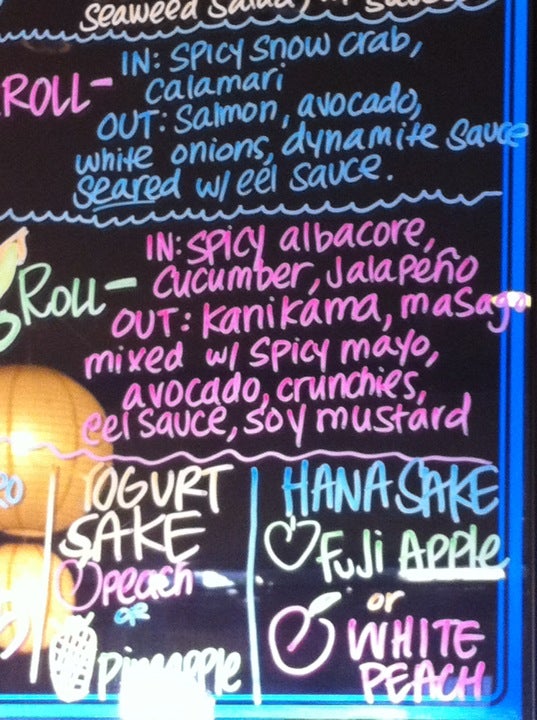 seaweed salad,
ROLL- IN: SPICY snow crab,
calamari
OUT: Salmon, avocado,
white onions, dynamite Sauce
Seared w/ eel sauce.
Roll- IN: SPICY albacore,
cucumber, Jalapeño
OUT: Kanikama, masago
mixed w/ SPICY mayo,
avocado, crunchies,
eel sauce, soy mustard
YOGURT
SAKE
peach
OR
Pineapple
HANA SAKE
Fuji APPle
or
WHITE
PEACH